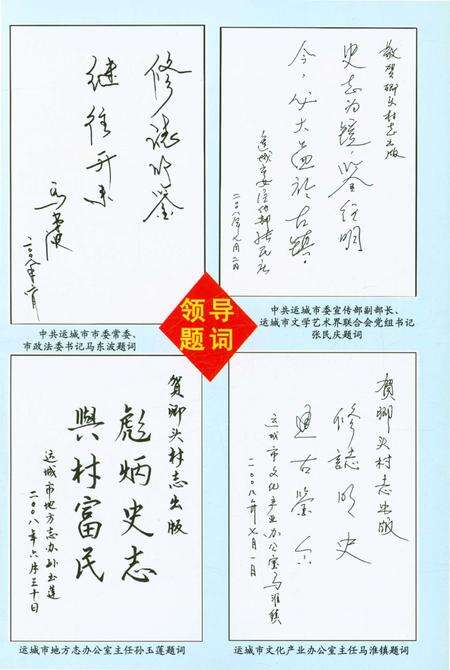 修志明鉴
继往开来
马东波
二〇〇八年六月
中共运城市市委常委、
市政法委书记马东波题词
敬贺卿头村志出版
史志为镜,鉴往明
今,
运城市委宣传部张民庆
二〇〇八年九月二日
中共运城市委宣传部副部长、
运城市文学艺术界联合会党组书记
张民庆题词
领导
题词
贺卿头村志出版
彪炳史志
興村富民
运城市地方志办孙玉莲
二〇〇八年六月三十日
运城市地方志办公室主任孙玉莲题词
贺卿头村志出版
修誌明史
通古鉴今
运城市文化产业办公室马淮镇
二〇〇八年七月一日
运城市文化产业办公室主任马淮镇题词